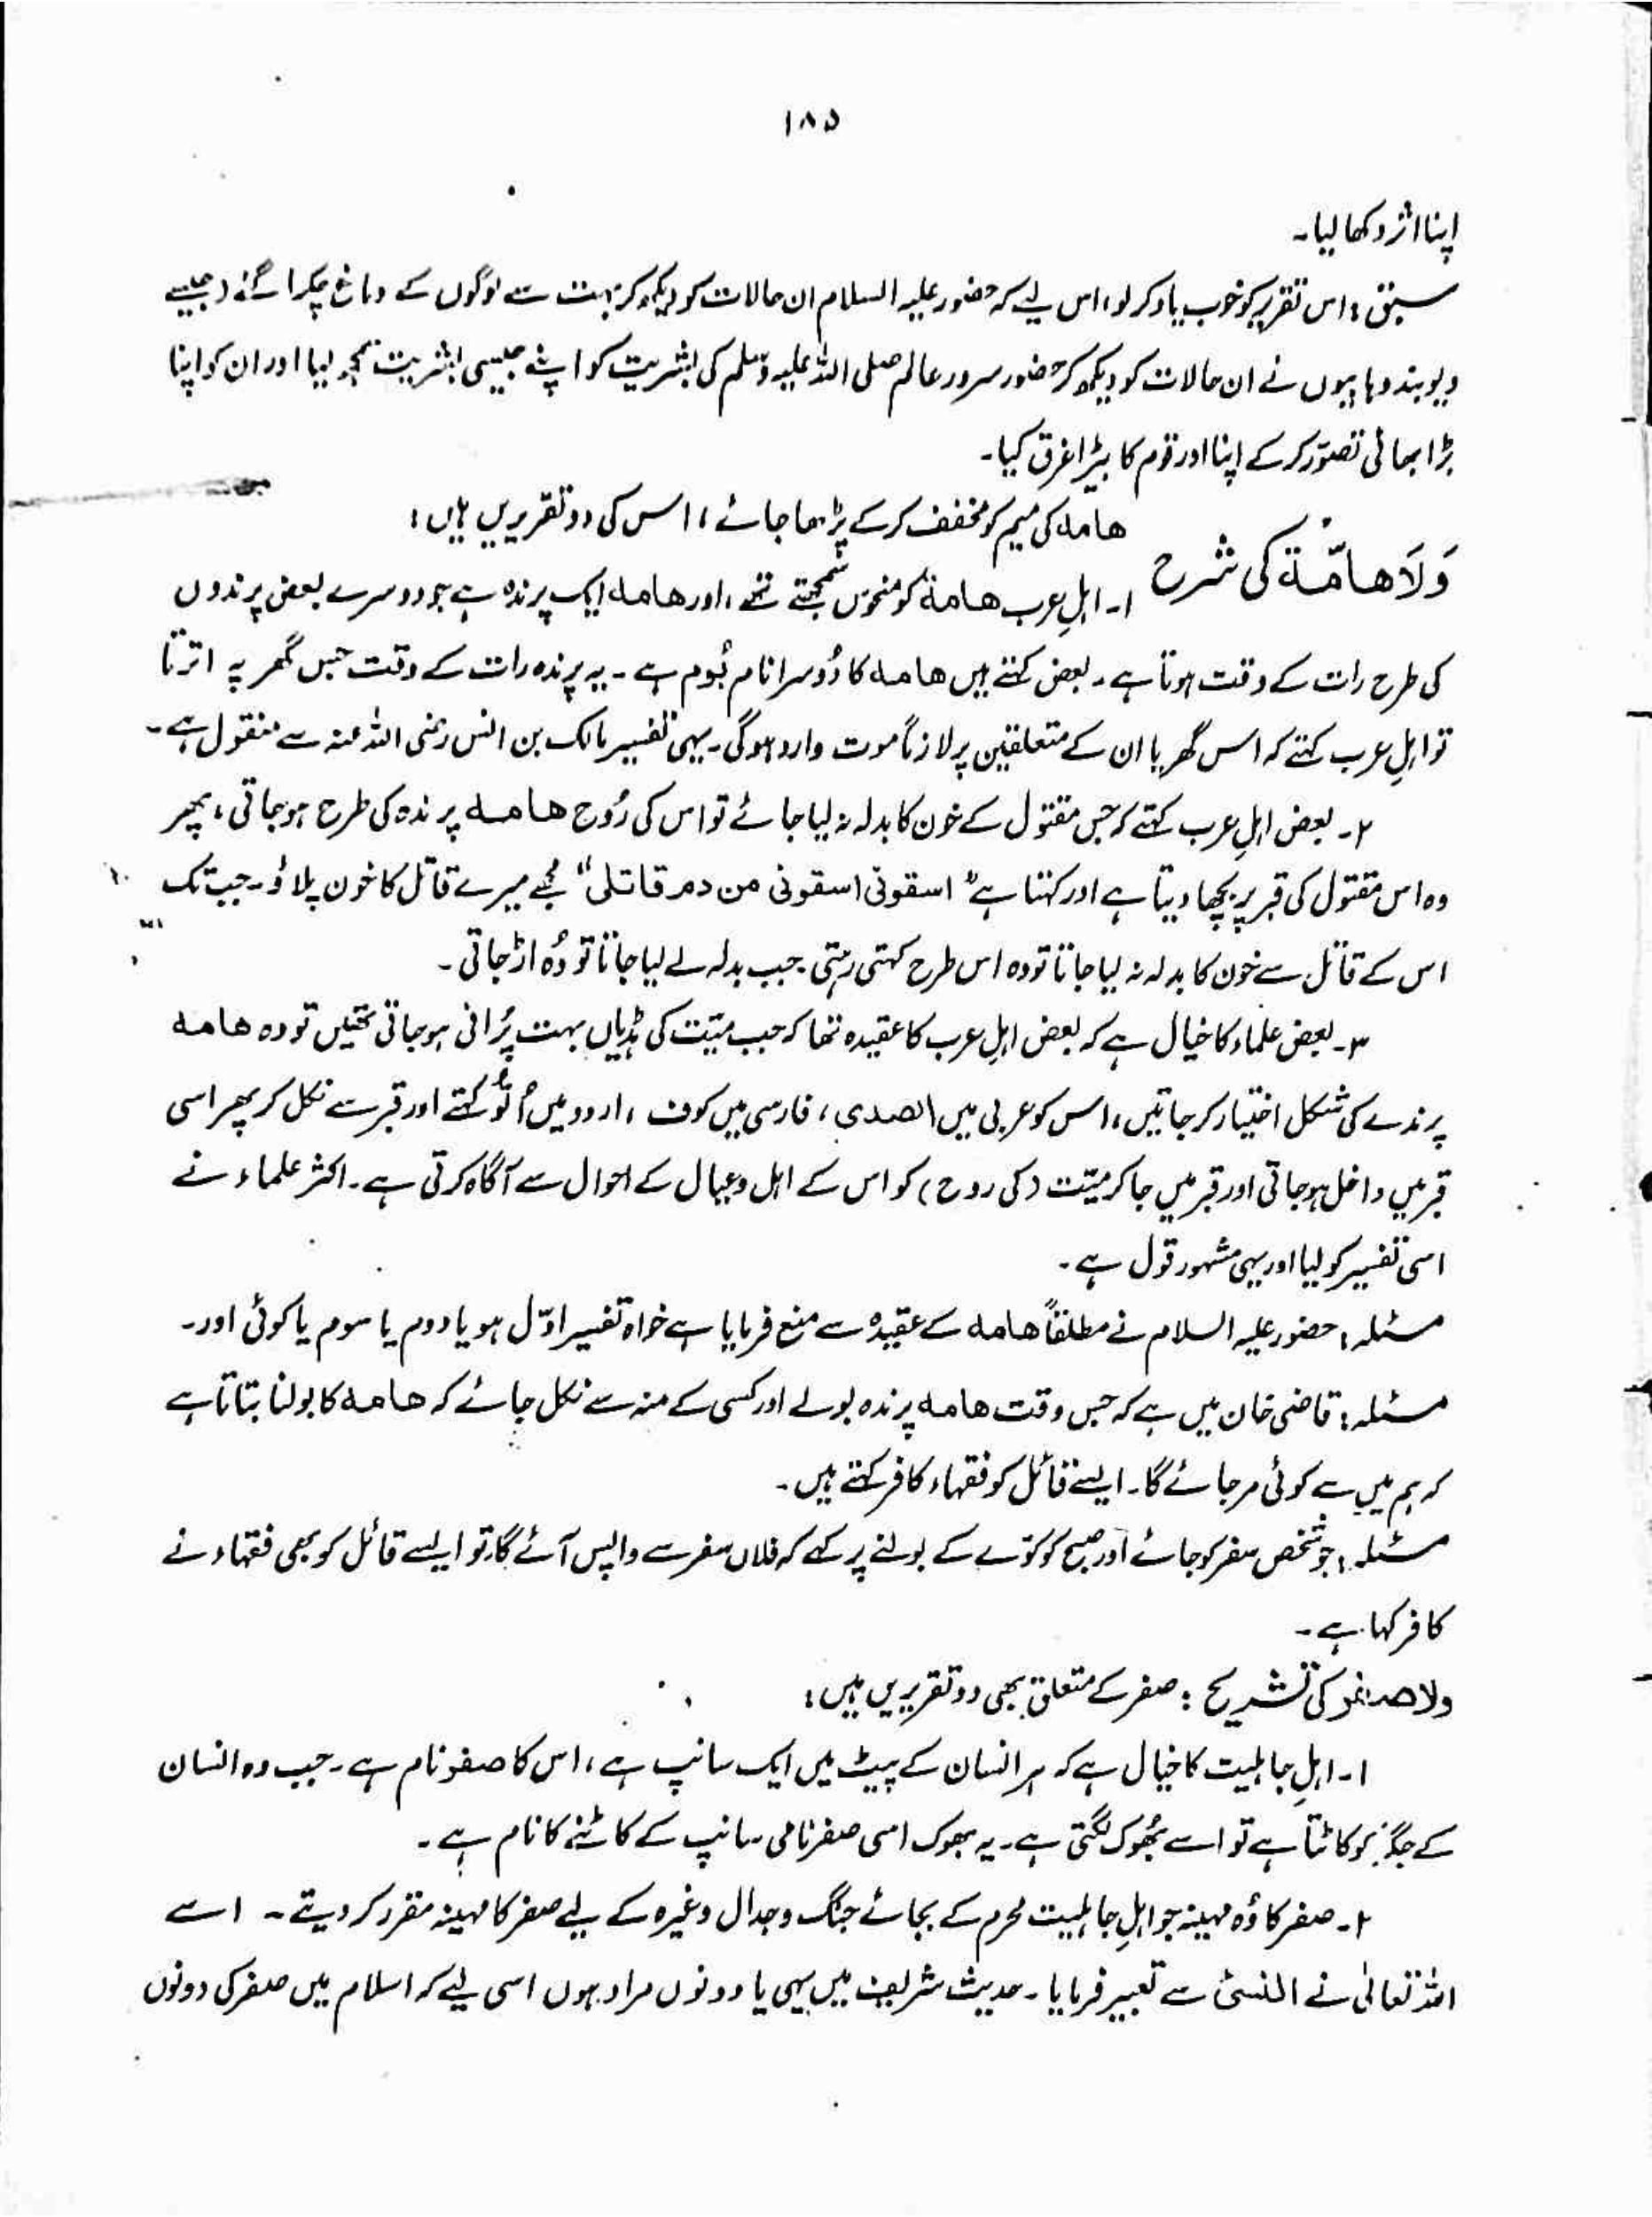 ۱۸۵
اپنا اثر دکھا لیا۔
سبق : اس تقریر کو خوب یاد کر لو، اس لیے کہ حضور علیہ السلام ان حالات کو دیکھ کر بہت سے لوگوں کے دماغ چکرا گئے (جیسے
دیوبند وہابیوں نے ان حالات کو دیکھ کر حضور سرور عالم صلی اللہ علیہ وسلم کی بشریت کو اپنے جیسی بشریت سمجھ لیا اور ان کو اپنا
بڑا بھائی تصوّر کر کے اپنا اور قوم کا بیڑا غرق کیا۔
ھامہ کی میم کو مخفف کر کے پڑھا جائے، اس کی دو تقریریں ہیں :
وَلَا ھامّۃ کی شرح
۱۔ اہلِ عرب ھامۃ کو منحوس سمجھتے تھے، اور ھامہ ایک پرندہ ہے جو دوسرے بعض پرندوں
کی طرح رات کے وقت ہوتا ہے۔ بعض کہتے ہیں ھامہ کا دُوسرا نام بُوم ہے۔ یہ پرندہ رات کے وقت جس گھر پہ اترتا
تو اہلِ عرب کہتے کہ اس گھر یا ان کے متعلقین پر لازماً موت وارد ہوگی۔ یہی تفسیر مالک بن انس رضی اللہ عنہ سے منقول ہے۔
۲۔ بعض اہلِ عرب کہتے کہ جس مقتول کے خون کا بدلہ نہ لیا جائے تو اس کی رُوح ھامہ پرندہ کی طرح ہو جاتی، پھر
وہ اس مقتول کی قبر پر بچھا دیتا ہے اور کہتا ہے" اسقونی اسقونی من دم قاتلی" مجھے میرے قاتل کا خون پلاؤ۔ جب تک
اس کے قاتل سے خون کا بدلہ نہ لیا جاتا تو وہ اس طرح کہتی رہتی۔ جب بدلہ لے لیا جاتا تو وُہ اڑ جاتی۔
۳۔ بعض علماء کا خیال ہے کہ بعض اہلِ عرب کا عقیدہ تھا کہ جب میّت کی ہڈیاں بہت پُرانی ہو جاتی تھیں تو وہ ھامہ
پرندے کی شکل اختیار کر جاتیں، اس کو عربی میں الصدی، فارسی میں کوف، اردو میں اُلّو کہتے اور قبر سے نکل کر پھر اسی
قبر میں داخل ہو جاتی اور قبر میں جا کر میّت (کی روح) کو اس کے اہل و عیال کے احوال سے آگاہ کرتی ہے۔ اکثر علماء نے
اسی تفسیر کو لیا اور یہی مشہور قول ہے۔
مسئلہ : حضور علیہ السلام نے مطلقاً ھامہ کے عقیدہ سے منع فرمایا ہے خواہ تفسیر اوّل ہو یا دوم یا سوم یا کوئی اور۔
مسئلہ : قاضی خان میں ہے کہ جس وقت ھامہ پرندہ بولے اور کسی کے منہ سے نکل جائے کہ ھامہ کا بولنا بتاتا ہے
کہ ہم میں سے کوئی مر جائے گا۔ ایسے قائل کو فقہاء کافر کہتے ہیں۔
مسئلہ : جو شخص سفر کو جائے اور صبح کو کوّے کے بولنے پر کہے کہ فلاں سفر سے واپس آئے گا تو ایسے قائل کو بھی فقہاء نے
کافر کہا ہے۔
ولا صفر کی تشریح : صفر کے متعلق بھی دو تقریریں ہیں :
۱۔ اہلِ جاہلیت کا خیال ہے کہ ہر انسان کے پیٹ میں ایک سانپ ہے، اس کا صفر نام ہے۔ جب وہ انسان
کے جگر کو کاٹتا ہے تو اسے بھُوک لگتی ہے۔ یہ بھوک اسی صفر نامی سانپ کے کاٹنے کا نام ہے۔
۲۔ صفر کا وُہ مہینہ جو اہلِ جاہلیت محرم کے بجائے جنگ و جدال وغیرہ کے لیے صفر کا مہینہ مقرر کر دیتے۔ اسے
اللہ تعالیٰ نے النسئ سے تعبیر فرمایا۔ حدیث شریف میں یہی یا دونوں مراد ہوں اسی لیے کہ اسلام میں صفر کی دونوں